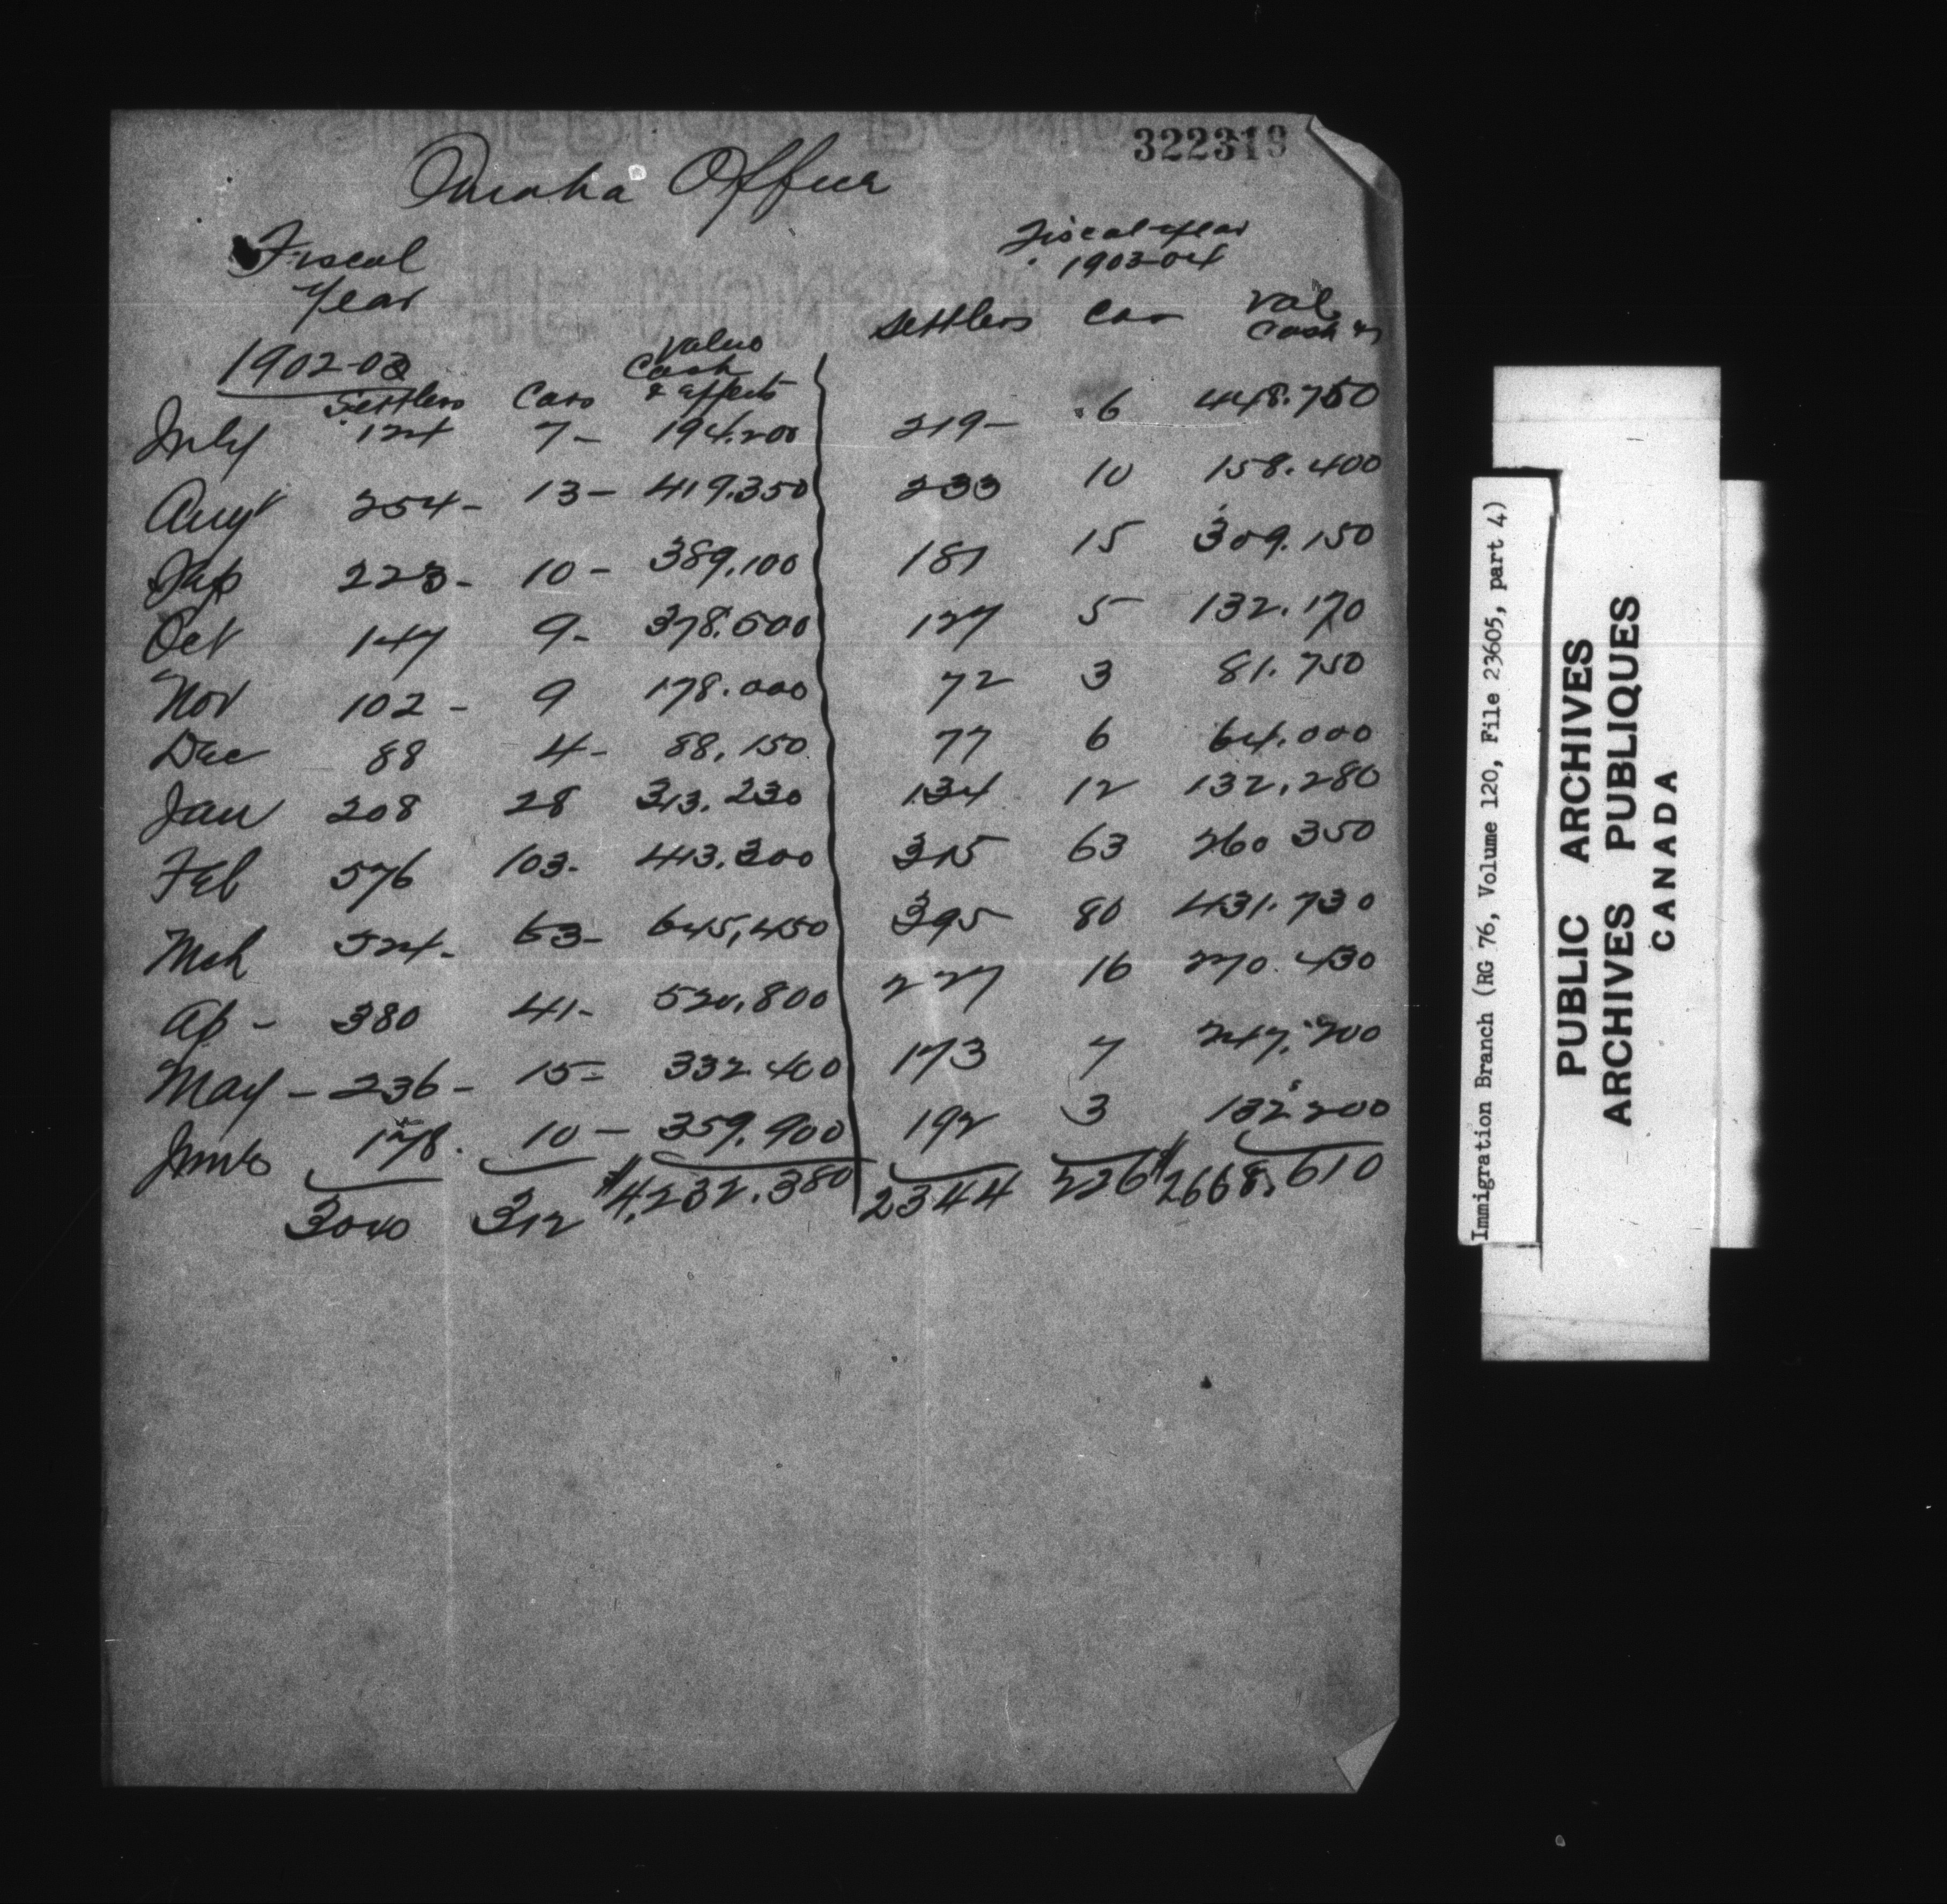 322319
Omaha Office
Fiscal
Year
1902-03
Settlers Cars Value
Cash
& affects
Fiscal year
1903-04
Settlers Car Val
Cash &
July 124 7- 194.200 219- 6 448.750
Augt 254- 13- 419.350 233 10 158.400
Sep 223- 10- 389,100 181 15 309.150
Oct 147 9- 378.500 127 5 132.170
Nov 102- 9 178.000 72 3 81.750
Dec 88 4- 88,150 77 6 64.000
Jan 208 28 313.230 134 12 132,280
Feb 576 103- 413.300 315 63 260 350
Mch 524- 63- 645,450 395 80 431.730
Ap- 380 41- 520,800 227 16 270.430
May- 236- 15- 332.400 173 7 247.200
June 178. 10- 359.900 192 3 132.200
3040 312 $4,232.380 2344 226 $2668,610
Immigration Branch (RG 76, Volume 120, File 23605, part 4)
PUBLIC ARCHIVES
ARCHIVES PUBLIQUES
CANADA